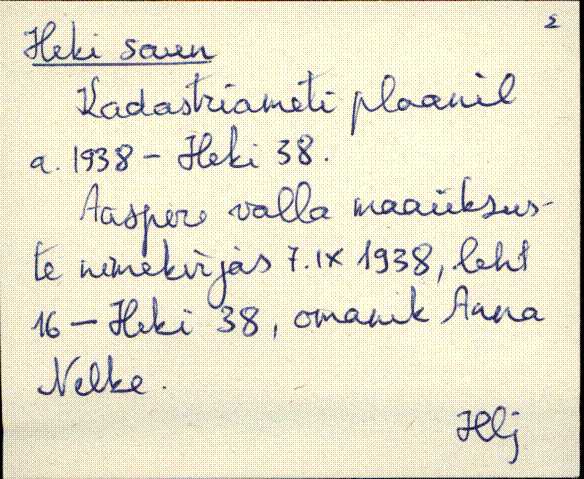 2
Heki saun
Kadastriameti plaanil
a. 1938 – Heki 38.
Aaspere valla maaüksus-
te nimekirjas 7.IX 1938, leht
16 – Heki 38, omanik Anna
Nelke.
Hlj